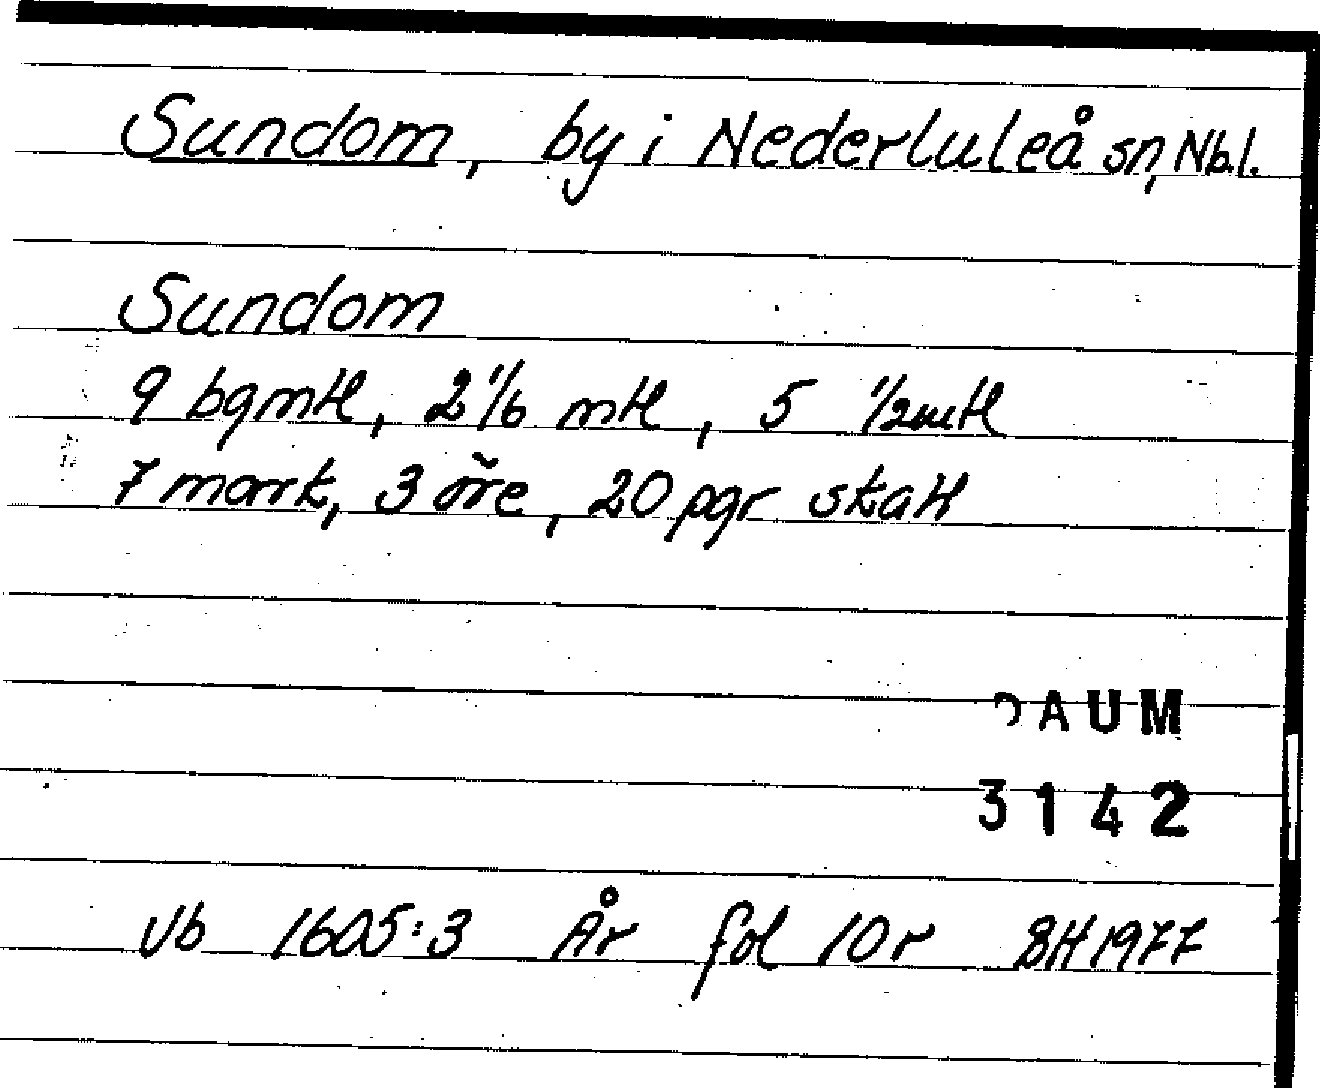 Sundom, by i Nederluleå sn, Nb.l.
Sundom
9 bgmtl, 2 1/6 mtl, 5 1/2 mtl
7 mark, 3 öre, 20 pgr skatt
DAUM
3142
Vb 1605:3 År fol 10r BH 1977